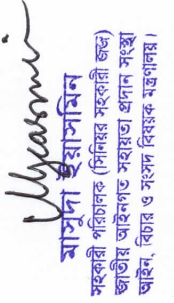 মাসুদা ইয়াসমিন
সহকারী পরিচালক (সিনিয়র সহকারী জজ)
জাতীয় আইনগত সহায়তা প্রদান সংস্থা
আইন, বিচার ও সংসদ বিষয়ক মন্ত্রণালয়।